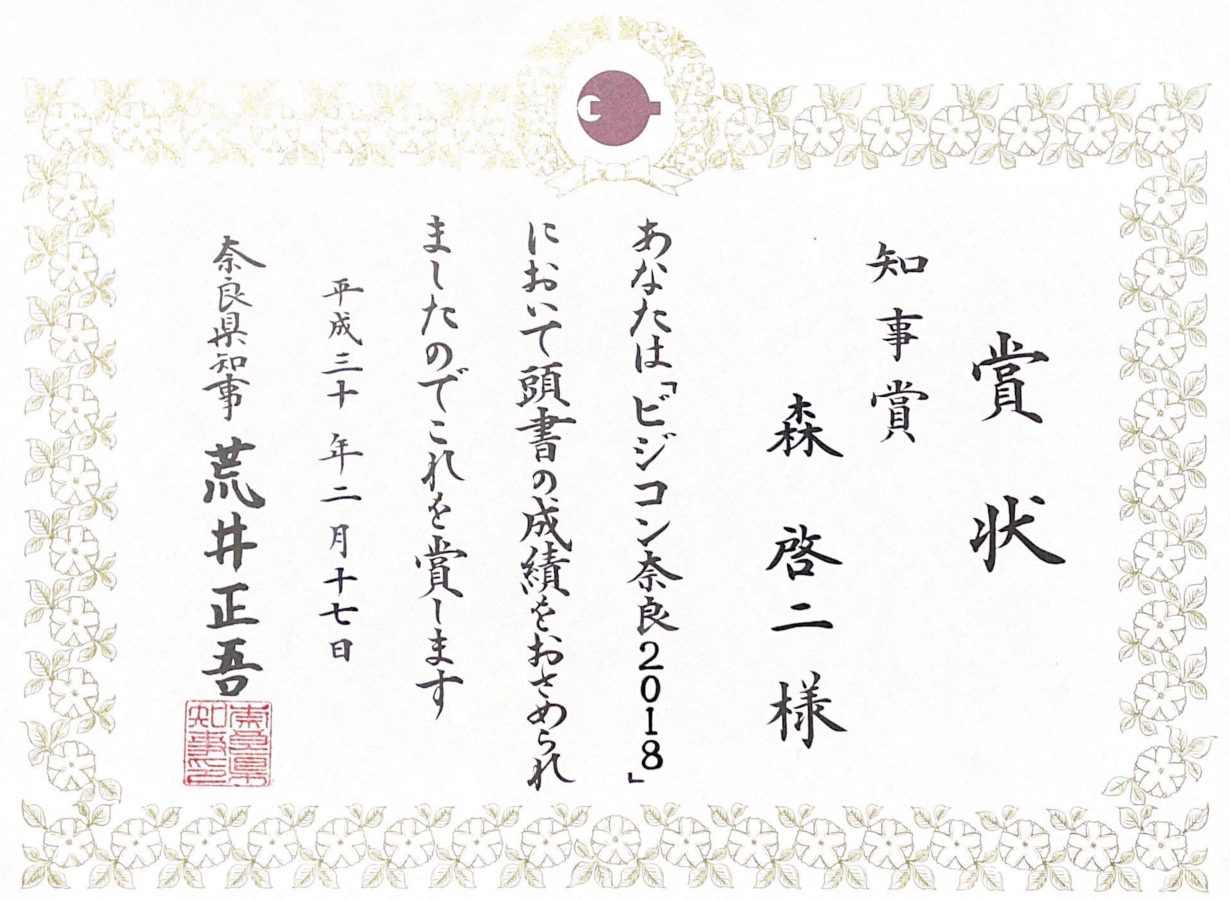 賞状
知事賞
森啓二様
あなたは「ビジコン奈良2018」
において頭書の成績をおさめられ
ましたのでこれを賞します
平成三十年二月十七日
奈良県知事 荒井正吾
奈良県
知事印